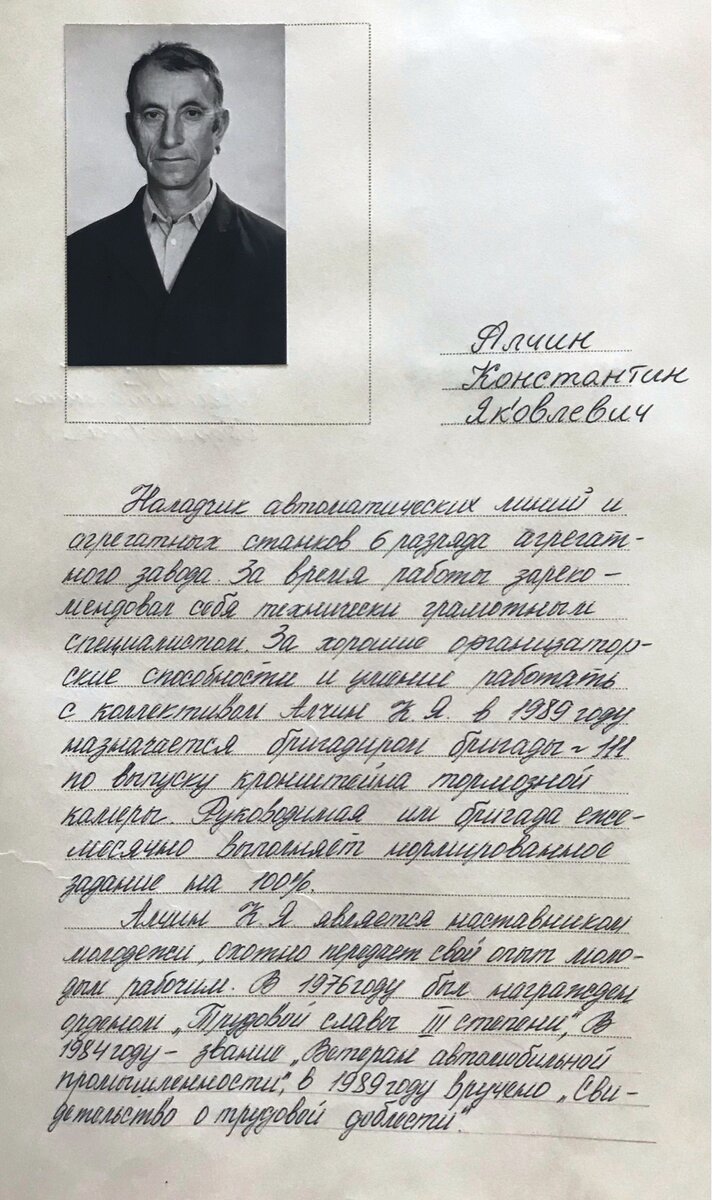 Алчин
Константин
Яковлевич
Наладчик автоматических линий и
агрегатных станков 6 разряда агрегат-
ного завода. За время работы зареко-
мендовал себя технически грамотным
специалистом. За хорошие организатор-
ские способности и умение работать
с коллективом Алчин К.Я. в 1989 году
назначается бригадиром бригады ~ 111
по выпуску кронштейна тормозной
камеры. Руководимая им бригада еже-
месячно выполняет нормированное
задание на 100%.
Алчин К.Я является наставником
молодежи, охотно передает свой опыт моло-
дым рабочим. В 1976 году был награжден
орденом „Трудовой славы III степени", В
1984 году – звание „Ветеран автомобильной
промышленности", в 1989 году вручено „Сви-
детельство о трудовой доблести".